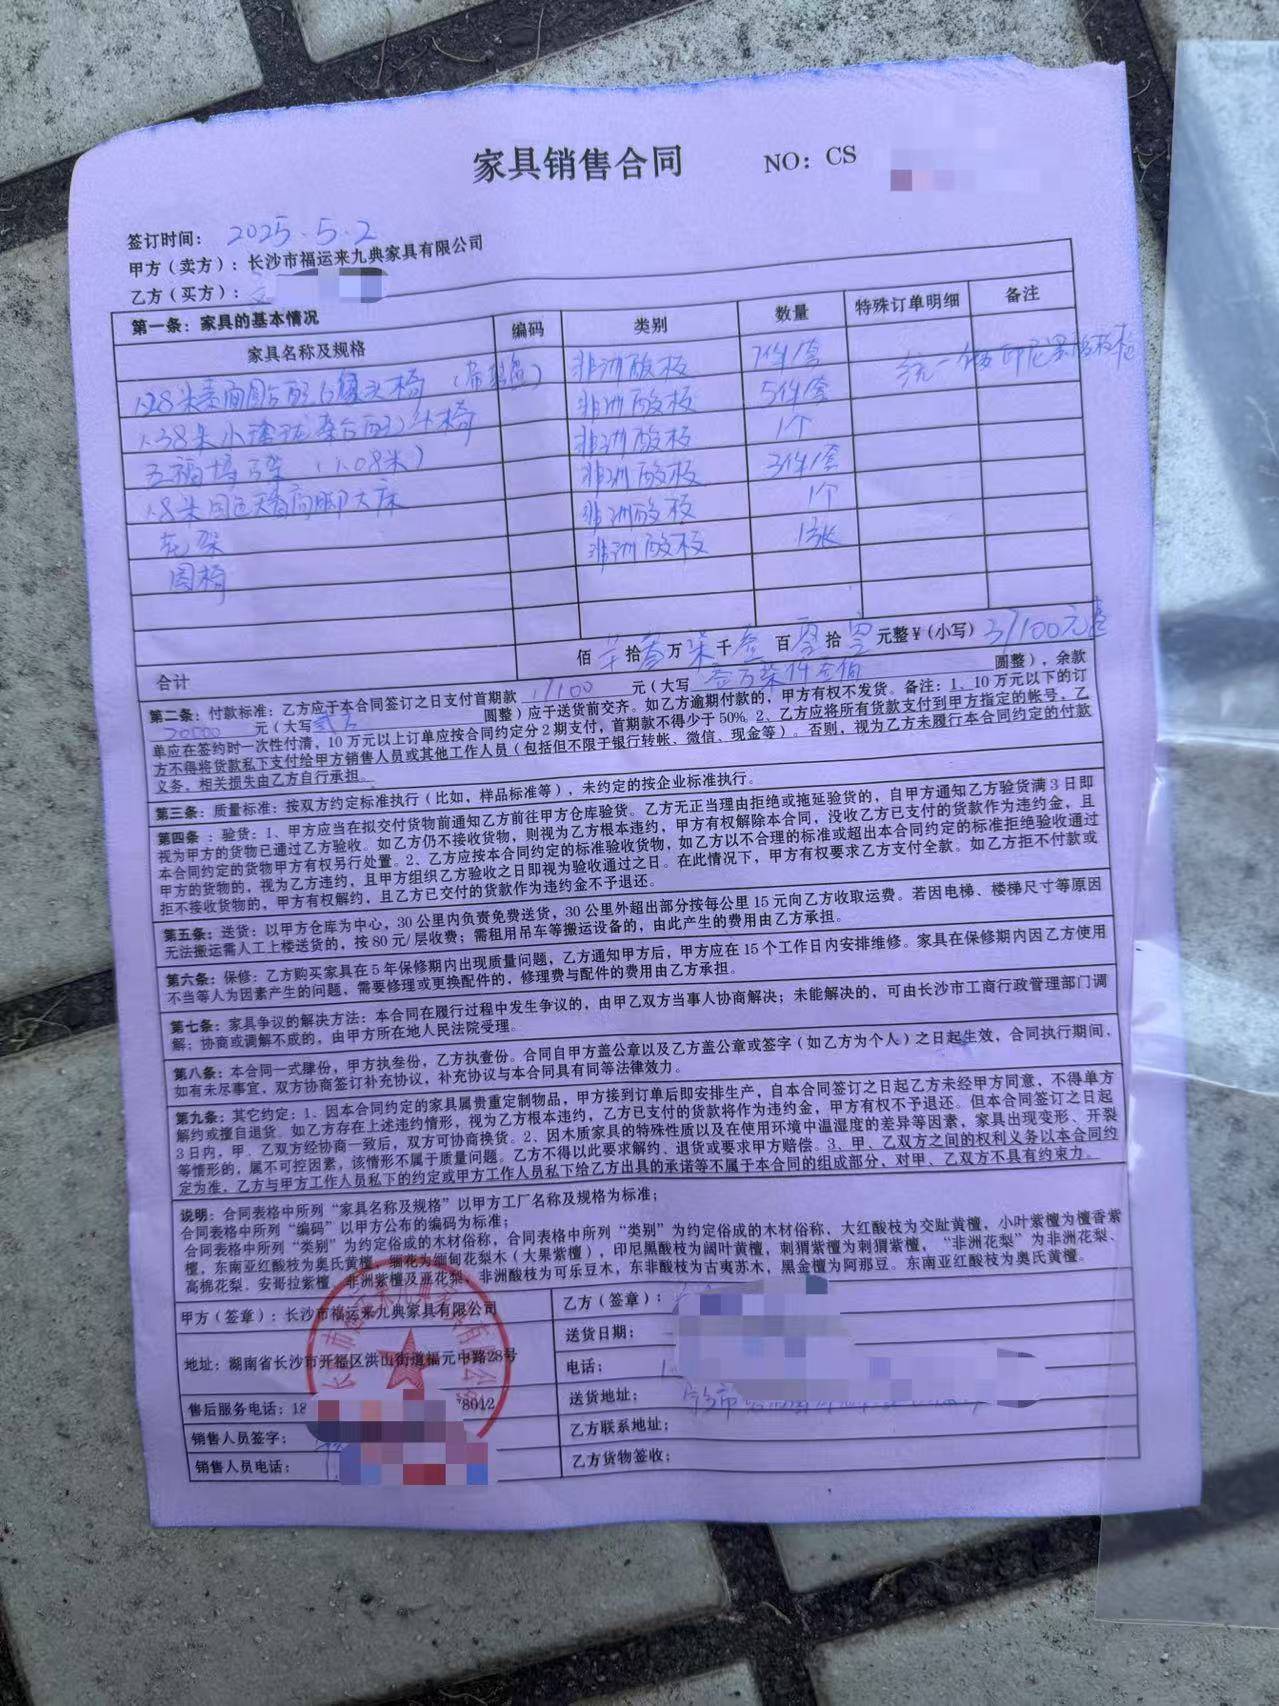 家具销售合同
NO：CS
签订时间：2025.5.2
甲方（卖方）：长沙市福运来九典家具有限公司
乙方（买方）：
第一条：家具的基本情况
家具名称及规格 编码 类别 数量 特殊订单明细 备注
1.28米 圆台配6 椅 非洲酸枝 7件/套 统一 印尼黑酸枝
1.38米小 茶台配 椅 非洲酸枝 5件套
五福 （1.08米） 非洲酸枝 1个
1.8米 高脚大床 非洲酸枝 3件/套
花架 非洲酸枝 1个
圈椅 非洲酸枝
合计 佰 拾叁万柒千壹百零拾零元整￥(小写) 37100元整
第二条：付款标准：乙方应于本合同签订之日支付首期款 17100 元（大写 圆整），余款
20000 元（大写贰万 圆整）应于送货前交齐。如乙方逾期付款的，甲方有权不发货。备注：1、10万元以下的订
单应在签约时一次性付清，10万元以上订单应按合同约定分2期支付，首期款不得少于50%。2、乙方应将所有货款支付到甲方指定的帐号，乙
方不得将货款私下支付给甲方销售人员或其他工作人员（包括但不限于银行转帐、微信、现金等）。否则，视为乙方未履行本合同约定的付款
义务，相关损失由乙方自行承担。
第三条：质量标准：按双方约定标准执行（比如，样品标准等），未约定的按企业标准执行。
第四条：验货：1、甲方应当在拟交付货物前通知乙方前往甲方仓库验货。乙方无正当理由拒绝或拖延验货的，自甲方通知乙方验货满3日即
视为甲方的货物已通过乙方验收。如乙方仍不接收货物，则视为乙方根本违约，甲方有权解除本合同，没收乙方已支付的货款作为违约金，且
本合同约定的货物甲方有权另行处置。2、乙方应按本合同约定的标准验收货物，如乙方以不合理的标准或超出本合同约定的标准拒绝验收通过
甲方的货物的，视为乙方违约，且甲方组织乙方验收之日即视为验收通过之日。在此情况下，甲方有权要求乙方支付全款。如乙方拒不付款或
拒不接收货物的，甲方有权解约，且乙方已交付的货款作为违约金不予退还。
第五条：送货：以甲方仓库为中心，30公里内负责免费送货，30公里外超出部分按每公里15元向乙方收取运费。若因电梯、楼梯尺寸等原因
无法搬运需人工上楼送货的，按80元/层收费；需租用吊车等搬运设备的，由此产生的费用由乙方承担。
第六条：保修：乙方购买家具在5年保修期内出现质量问题，乙方通知甲方后，甲方应在15个工作日内安排维修。家具在保修期内因乙方使用
不当等人为因素产生的问题，需要修理或更换配件的，修理费与配件的费用由乙方承担。
第七条：家具争议的解决方法：本合同在履行过程中发生争议的，由甲乙双方当事人协商解决；未能解决的，可由长沙市工商行政管理部门调
解；协商或调解不成的，由甲方所在地人民法院受理。
第八条：本合同一式肆份，甲方执叁份，乙方执壹份。合同自甲方盖公章以及乙方盖公章或签字（如乙方为个人）之日起生效，合同执行期间，
如有未尽事宜，双方协商签订补充协议，补充协议与本合同具有同等法律效力。
第九条：其它约定：1、因本合同约定的家具属贵重定制物品，甲方接到订单后即安排生产，自本合同签订之日起乙方未经甲方同意，不得单方
解约或擅自退货。如乙方存在上述违约情形，视为乙方根本违约，乙方已支付的货款将作为违约金，甲方有权不予退还。但本合同签订之日起
3日内，甲、乙双方经协商一致后，双方可协商换货。2、因木质家具的特殊性质以及在使用环境中温湿度的差异等因素，家具出现变形、开裂
等情形的，属不可控因素，该情形不属于质量问题。乙方不得以此要求解约、退货或要求甲方赔偿。3、甲、乙双方之间的权利义务以本合同约
定为准，乙方与甲方工作人员私下的约定或甲方工作人员私下给乙方出具的承诺等不属于本合同的组成部分，对甲、乙双方不具有约束力。
说明：合同表格中所列“家具名称及规格”以甲方工厂名称及规格为标准；
合同表格中所列“编码”以甲方公布的编码为标准；
合同表格中所列“类别”为约定俗成的木材俗称，合同表格中所列“类别”为约定俗成的木材俗称，大红酸枝为交趾黄檀，小叶紫檀为檀香紫
檀，东南亚红酸枝为奥氏黄檀，缅花为缅甸花梨木（大果紫檀），印尼黑酸枝为阔叶黄檀，刺猬紫檀为刺猬紫檀，“非洲花梨”为非洲花梨、
高棉花梨，安哥拉紫檀，非洲紫檀及亚花梨，非洲酸枝为可乐豆木，东非酸枝为古夷苏木，黑金檀为阿那豆。东南亚红酸枝为奥氏黄檀。
甲方（签章）：长沙市福运来九典家具有限公司 乙方（签章）：
地址：湖南省长沙市开福区洪山街道福元中路28号 送货日期：
电话：1
售后服务电话：18 78012 送货地址：
销售人员签字： 乙方联系地址：
销售人员电话： 乙方货物签收：